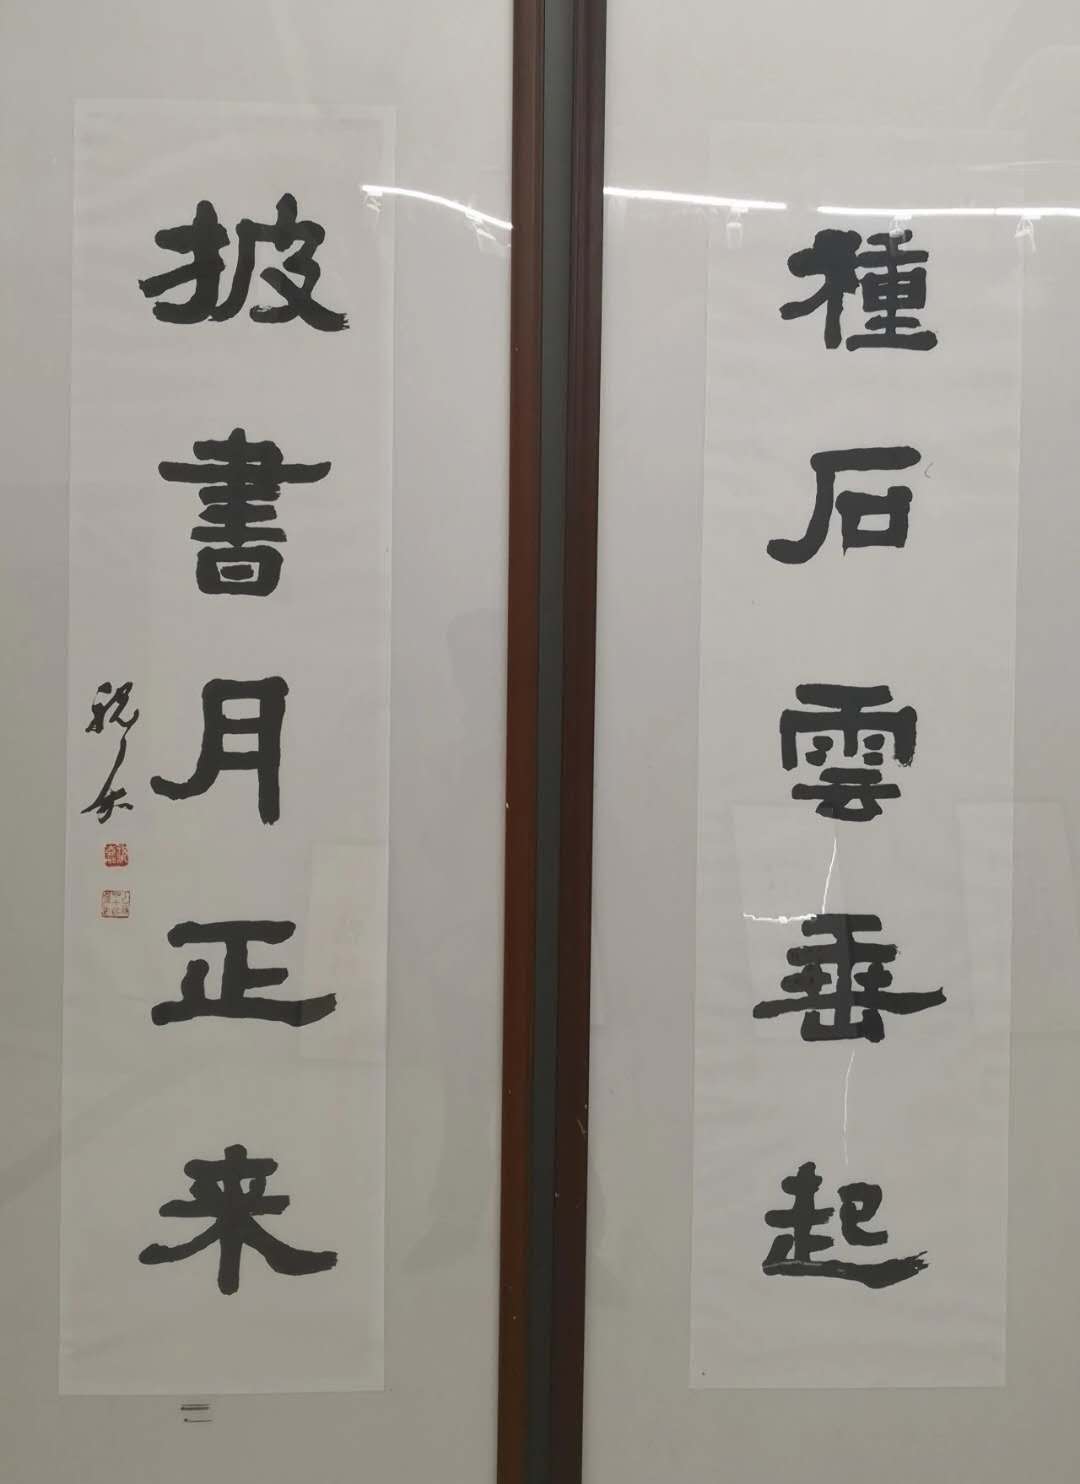 種石雲垂起
披書月正来